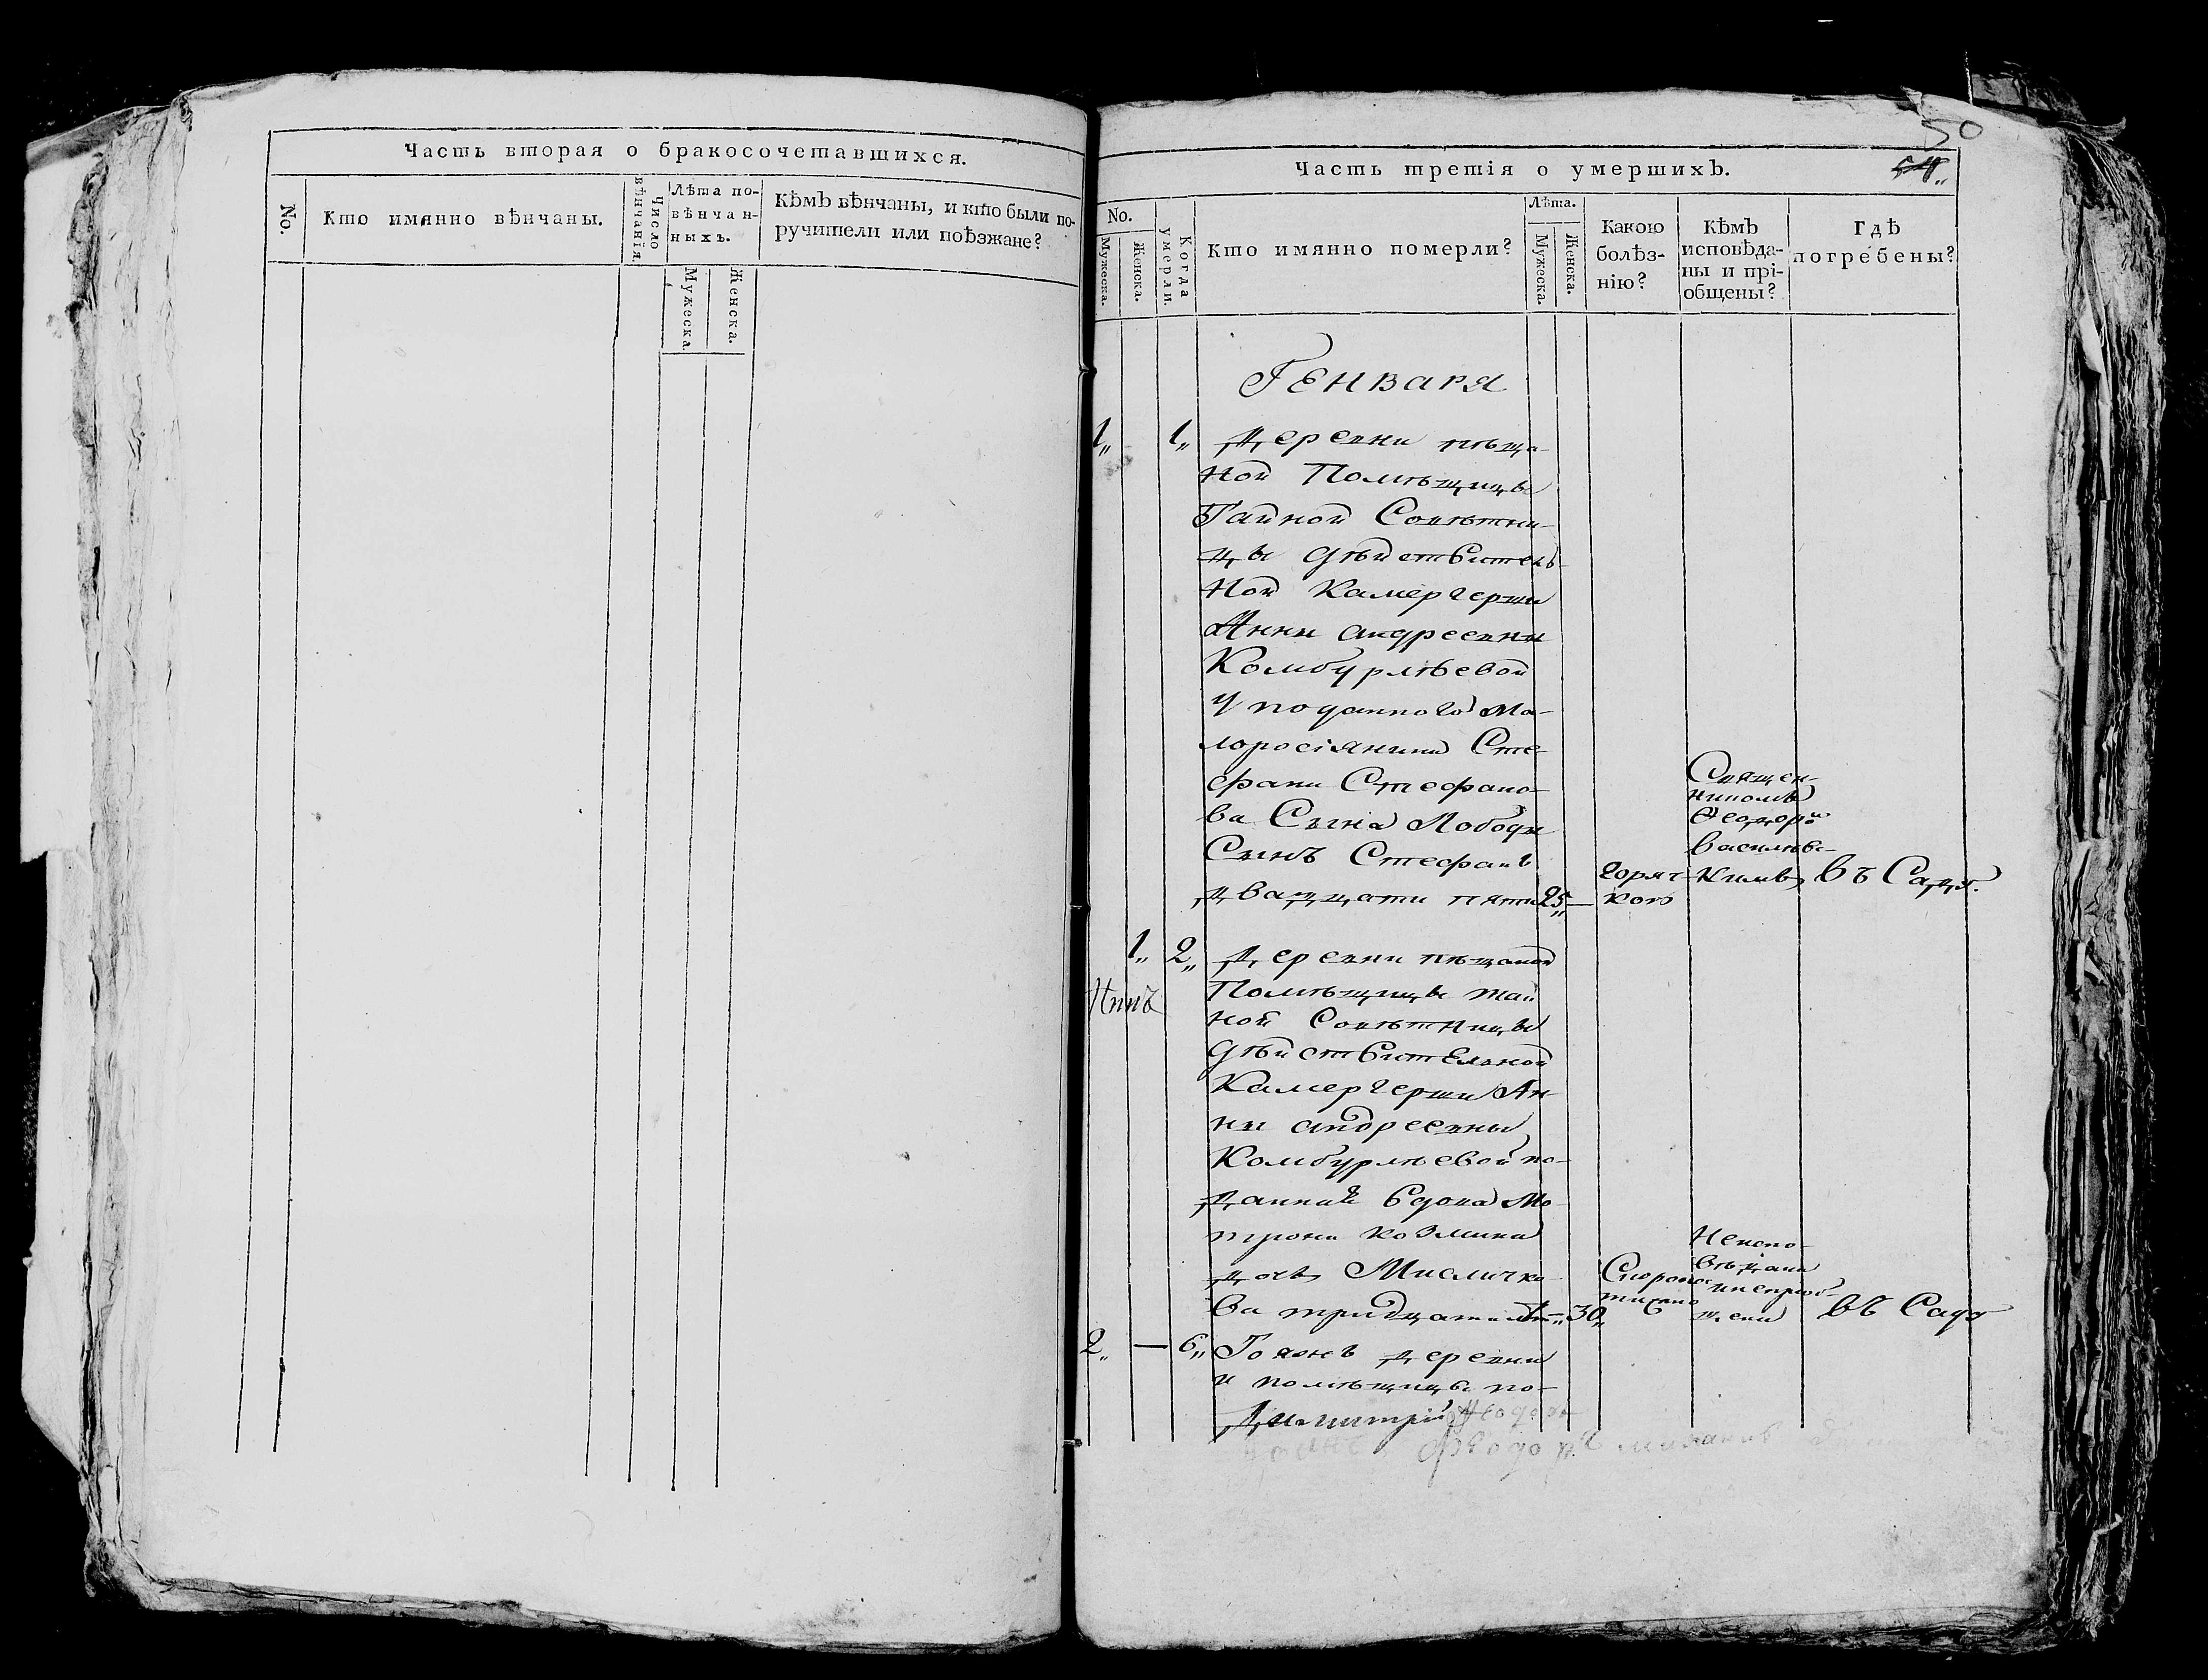 Часть вторая о бракосочетавшихся.
No.
Кто имянно вѣнчаны.
Число вѣнчанія.
Лѣта по-
вѣнчан-
ныхъ.
Мужеска.
Женска.
Кѣмъ вѣнчаны, и кто были по-
ручители или поѣзжане?
50
Часть третія о умершихъ.
No.
Мужеска.
Женска.
Когда умерли.
Кто имянно померли?
Лѣта.
Мужеска.
Женска.
Какою
болѣз-
нію?
Кѣмъ
исповѣда-
ны и прі-
общены?
Гдѣ
погребены?
Генваря
1„ 1„ Деревни пѣща-
ной Помѣщицы
Тайной Совѣтни-
цы дѣйствитель-
ной Камергерши
Анны андреевны
Комбурлѣевой
у поданного Ма-
лоросіянина Сте-
фана Стефано-
ва Сына Лободы
Сынъ Стефанъ
двадцати пяти 25„ —
горяч-
кою
Священ-
никомъ
Феодоро
василевс-
кимъ
въ Сад.
1„ 2„ Деревни пѣщаной
Помѣщицы тай
ной Совѣтницы
дѣйствительной
Камергерши Ан-
ны андреевны
Комбурлѣевой по-
данная вдова Мо
трона козмина
дочь
ва тридцати лѣт„ 30„
Скоропос
тижно
Неиспо-
вѣдана
инепріоб-
щена
въ Саду
2„ — 6„ Тояжъ деревни
и помѣщицы по-
Димитрій